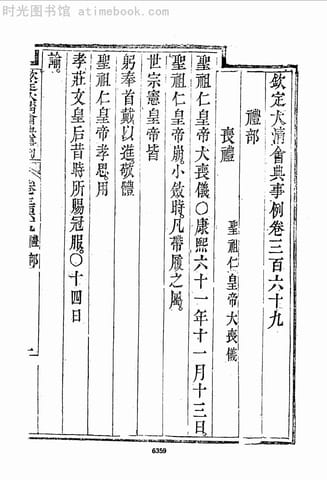 时光图书馆 atimebook.com
欽定大清會典事例卷三百六十九
禮部
喪禮 聖祖仁皇帝大喪儀
聖祖仁皇帝大喪儀○康熙六十一年十一月十三日。
聖祖仁皇帝崩。小斂時。凡帶履之屬。
世宗憲皇帝皆
躬奉首戴以進。敬體
聖祖仁皇帝孝思。用
孝莊文皇后昔時所賜冠服。○十四日
諭。
禮部
一
6359